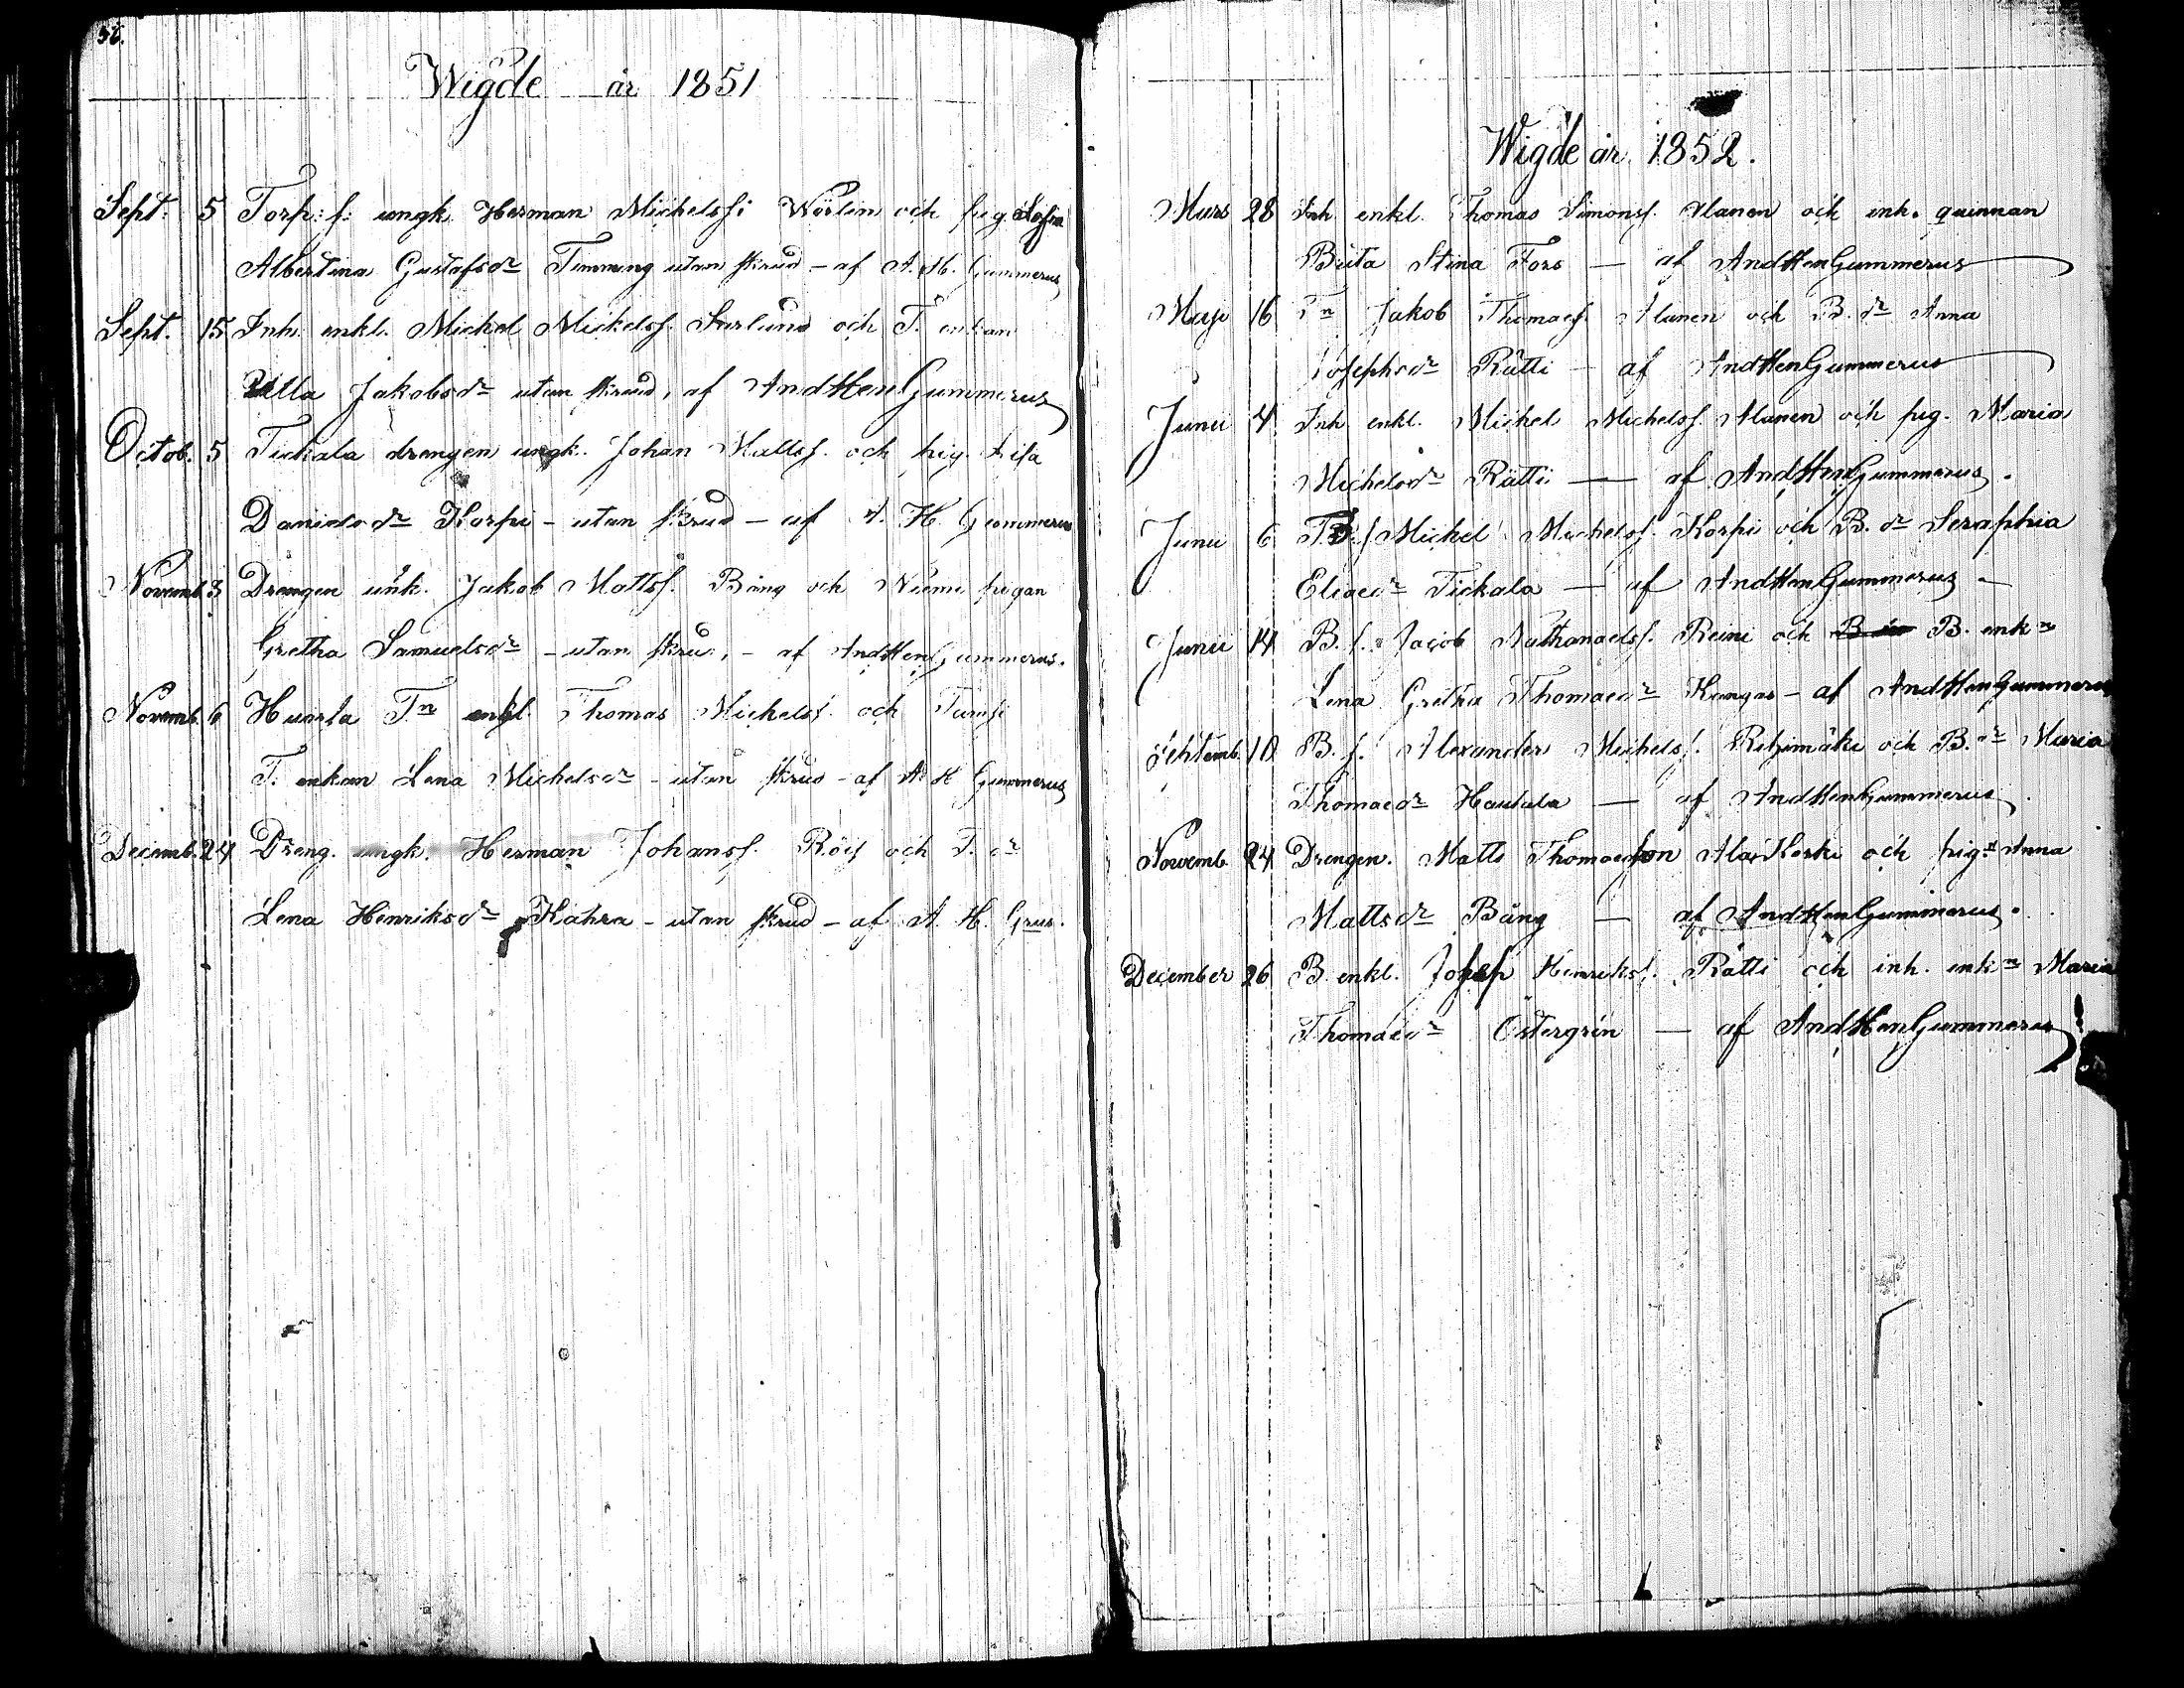 56.
Wigde år 1851
Sept. 5 Torp. f. ungk Herman Michelsf: Wörlin och pig Sofia
Albertina Gustafsdr Timming utan skrud - af A. H. Gummerus
Sept. 15 Inh. enkl. Mickel Mickelsf. Sarlund och T. enkan
Ulla Jakobsdr utan skrud, af AndHenGummerus
Octob. 5 Tickala drengen ungk. Johan Mattsf. och pig. Lisa
Danielsdr Korpi - utan skrud - af A. H. Gummerus
Novemb. 3 Drengen unk. Jakob Mattsf. Bång och Niemi pigan
Gretha Samuelsdr - utan skru:, - af AndHenGummerus.
Novemb. 6 Tn enkl. Thomas Michelsf. och
T. enkan Lena Michelsdr - utan skrud - af A H Gummerus
Decemb. 24 Dreng. ungk. Herman Johansf. och T. dr
Lena Henriksdr Kahra - utan skrud - af A. H. Grus.
Wigde år 1852.
Mars 28 Inh enkl. Thomas Simonsf. Alanen och inh. quinnan
Brita Stina Fors — af AndHenGummerus
Maji 16 Tn Jakob Thomaesf. Alanen och B. dr Anna
Josephsdr Rätti — af AndHenGummerus
Junii 4 Inh enkl. Michel Michelsf. Alanen och pig. Maria
Michelsdr Rätti — af AndHenGummerus.
Junii 6 Michel Michelsf. Korpi och B. dr Seraphia
Eliaedr Tickala — af AndHenGummerus —
Junii 14 B. f. Jacob Nathanaelsf. Reini och B. enkn
Lena Gretha Thomaedr Kangas - af AndHenGummerus
Sehtemb. 10 B. f. Alexander Michelsf. och B. dr Maria
Thomaedr Hautala — af AndHenGummerus.
Novemb. 24 Drengen. Matts Thomaesson Ala Koski och pig. Anna
Mattsdr Bång — af AndHenGummerus.
December 26 B. enkl. Josep Henriksf. Rätti och inh. enkn Maria
Thomaedr Östergrén — af AndHenGummerus